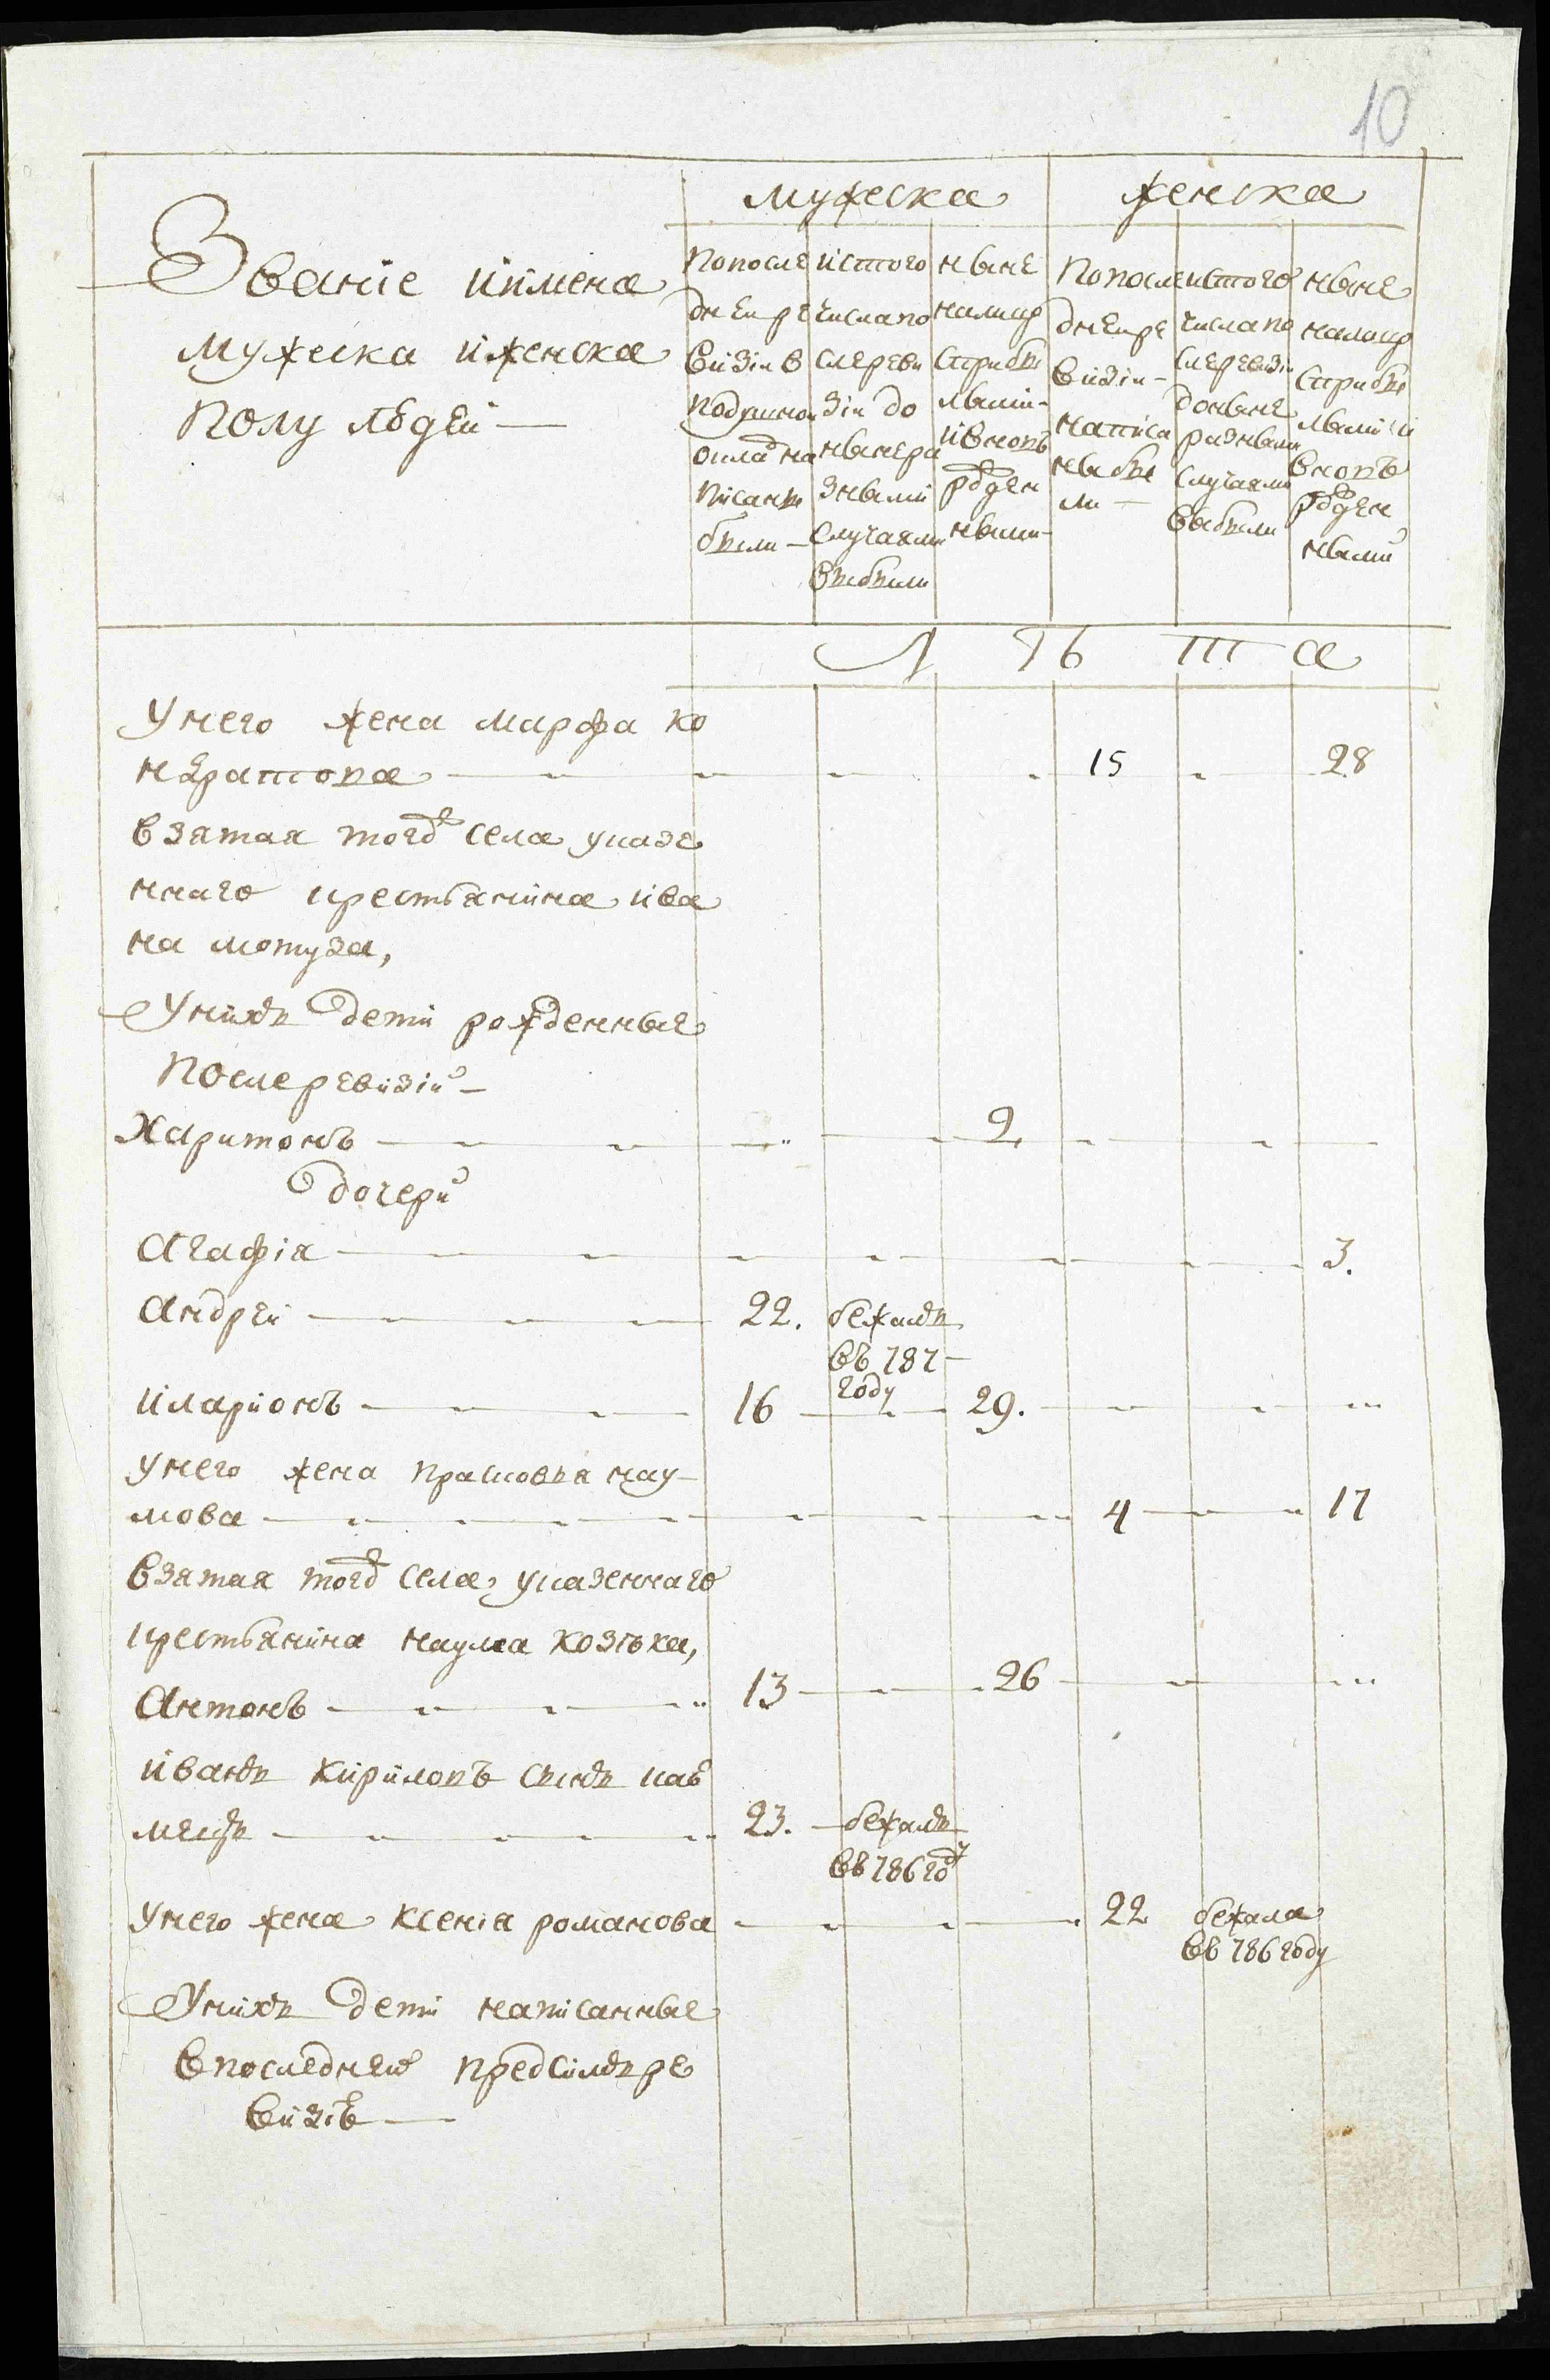 10
мужеска женска
Званіе иимена
мужеска иженска
полу людей
попосле
дней ре
визіи в
подушной
окладъ на
писаны
были
истого
числа по
слереви
зіи до
ныне ра
зными
случаями
выбыли
ныне
налицо
сприбы
лыми
ивновь
рожден
ными
попосле
дней ре
визіи
написа
ны бы
ли
истого
числа по
слеревизіи
доныне
разными
случаями
выбыли
ныне
налицо
сприбы
лыми и
вновь
рожден
ными
Лѣта
Унего жена марфа ко
ндратова 15 28
взятая тогожъ села указе
ннаго крестьянина ива
на мотуза,
Унихъ дети рожденные
послеревизіи
Харитонъ 2
дочери
Агафія 3.
Андрей 22. бежалъ
въ 787
году
Иларионъ 16 29.
Унего жена прасковья нау
мова 4 17
взятая тогожъ села указеннаго
крестьянина наума козъка,
Антонъ 13 26
Иванъ Кириловъ сынъ
23. бежалъ
въ 786 году
Унего жена ксенія романова 22 бежала
въ 786 году
Унихъ дети написанные
впоследней предсимъ ре
визіѣ